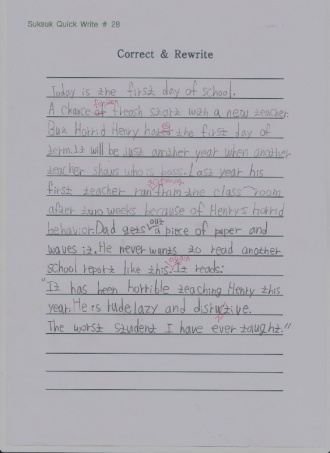 Suksuk Quick Write # 28
Correct & Rewrite
Today is the first day of school.
A chance of fresh start with a new teacher.
But Horrid Henry hates the first day of
term. It will be just another year when another
teacher shows who is boss. Last year his
first teacher ran from the class room
after two weeks because of Henry's horrid
behavior. Dad gets out a piece of paper and
waves it. He never wants to read another
school report like this again. It reads:
"It has been horrible teaching Henry this
year. He is rude lazy and disrutive.
The worst student I have ever taught."